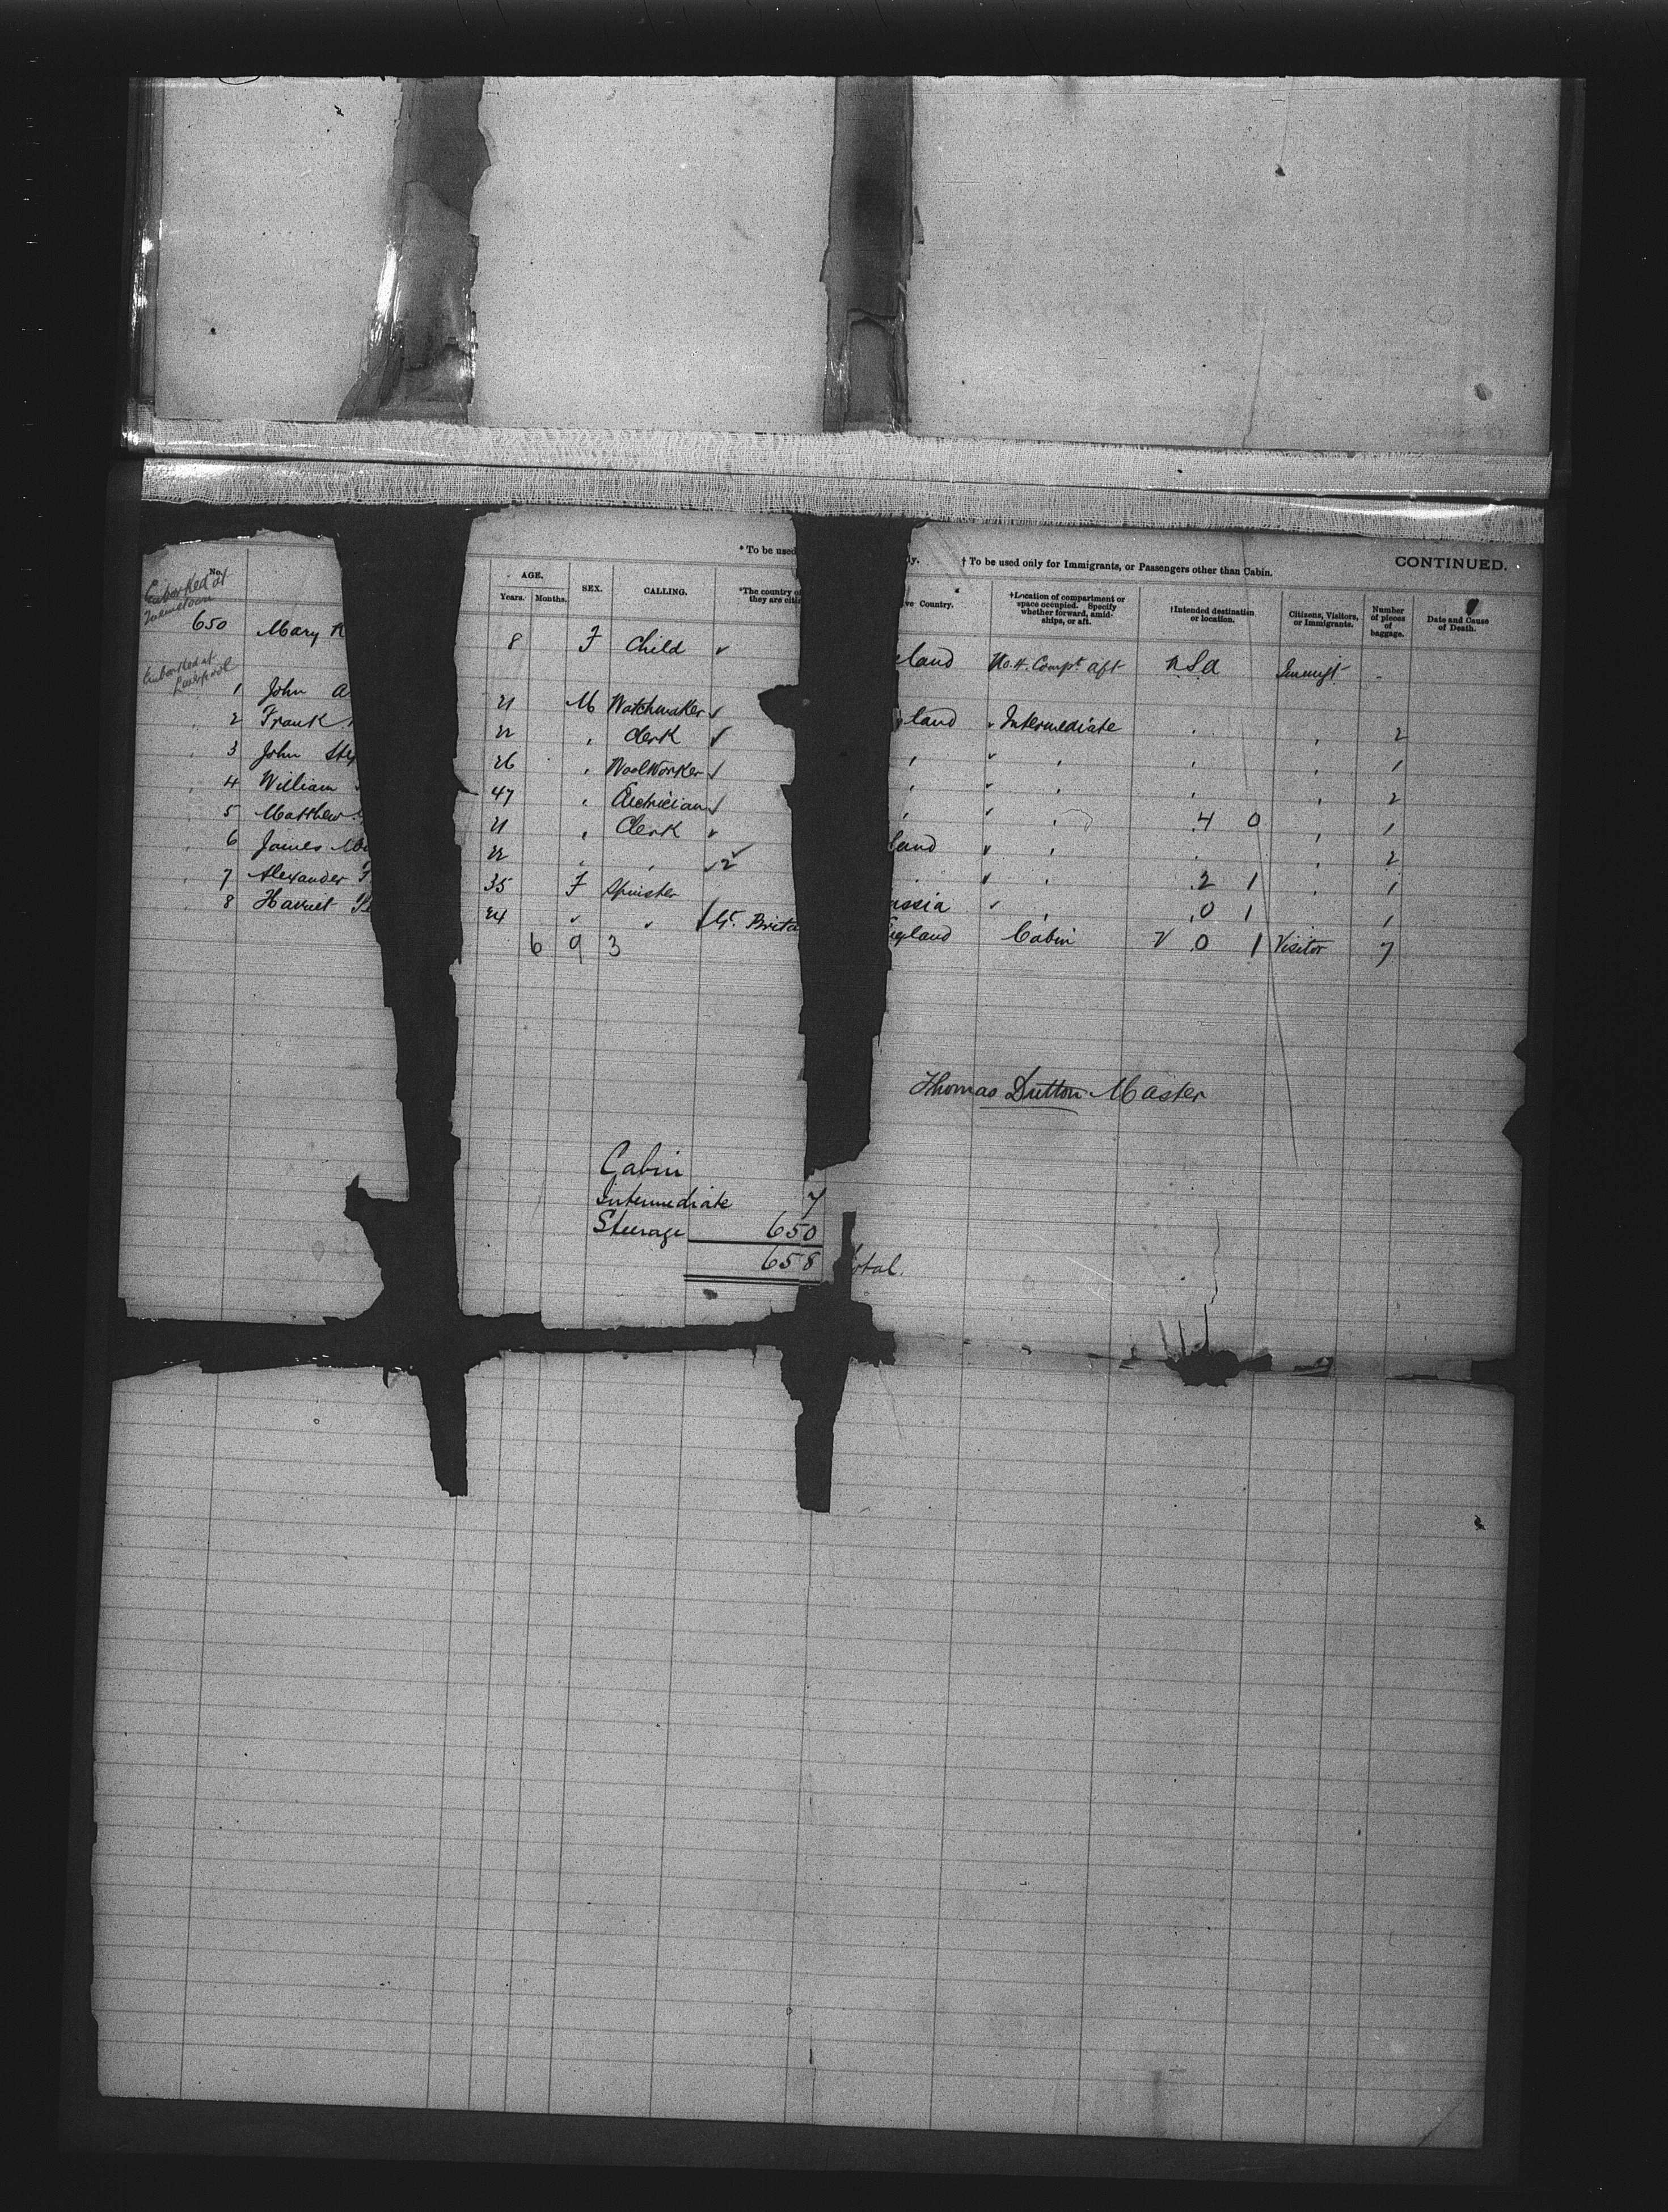 * To be used ly. † To be used only for Immigrants, or Passengers other than Cabin. CONTINUED.
No. AGE. Years. Months. SEX. CALLING. *The country of they are citiz ve Country. †Location of compartment or space occupied. Specify whether forward, amid-ships, or aft. †Intended destination or location. Citizens, Visitors, or Immigrants. Number of pieces of baggage. Date and Cause of Death.
Embarked at
650 Mary 8 F Child land Compt aft U.S.A Immigt -
Embarked at Liverpool
1 John A 21 M Watchmaker land Intermediate 2
2 Frank 22 Clerk 1
3 John Ste 26 Woolworker 2
4 William 47 Electrician 4 0 1
5 Matthew 21 Clerk land 2
6 James 22 2 2 1 1
7 Alexander 35 F Spinster ussia 0 1 1
8 Harriet 24 Gt. Brita ngland Cabin 0 1 Visitor 7
6 9 3
Thomas Dutton Master
Cabin
Intermediate 7
Steerage 650
658 total.